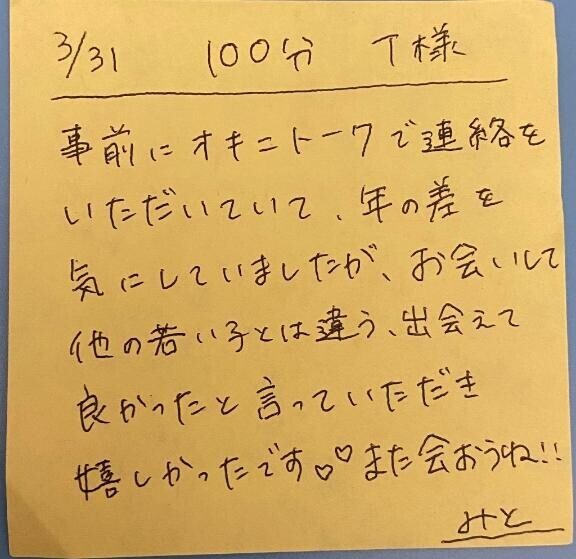 3/31 100分 T様
事前にオキニトークで連絡を
いただいていて、年の差を
気にしていましたが、お会いして
他の若い子とは違う、出会えて
良かったと言っていただき
嬉しかったです♡♡また会おうね!!
みと